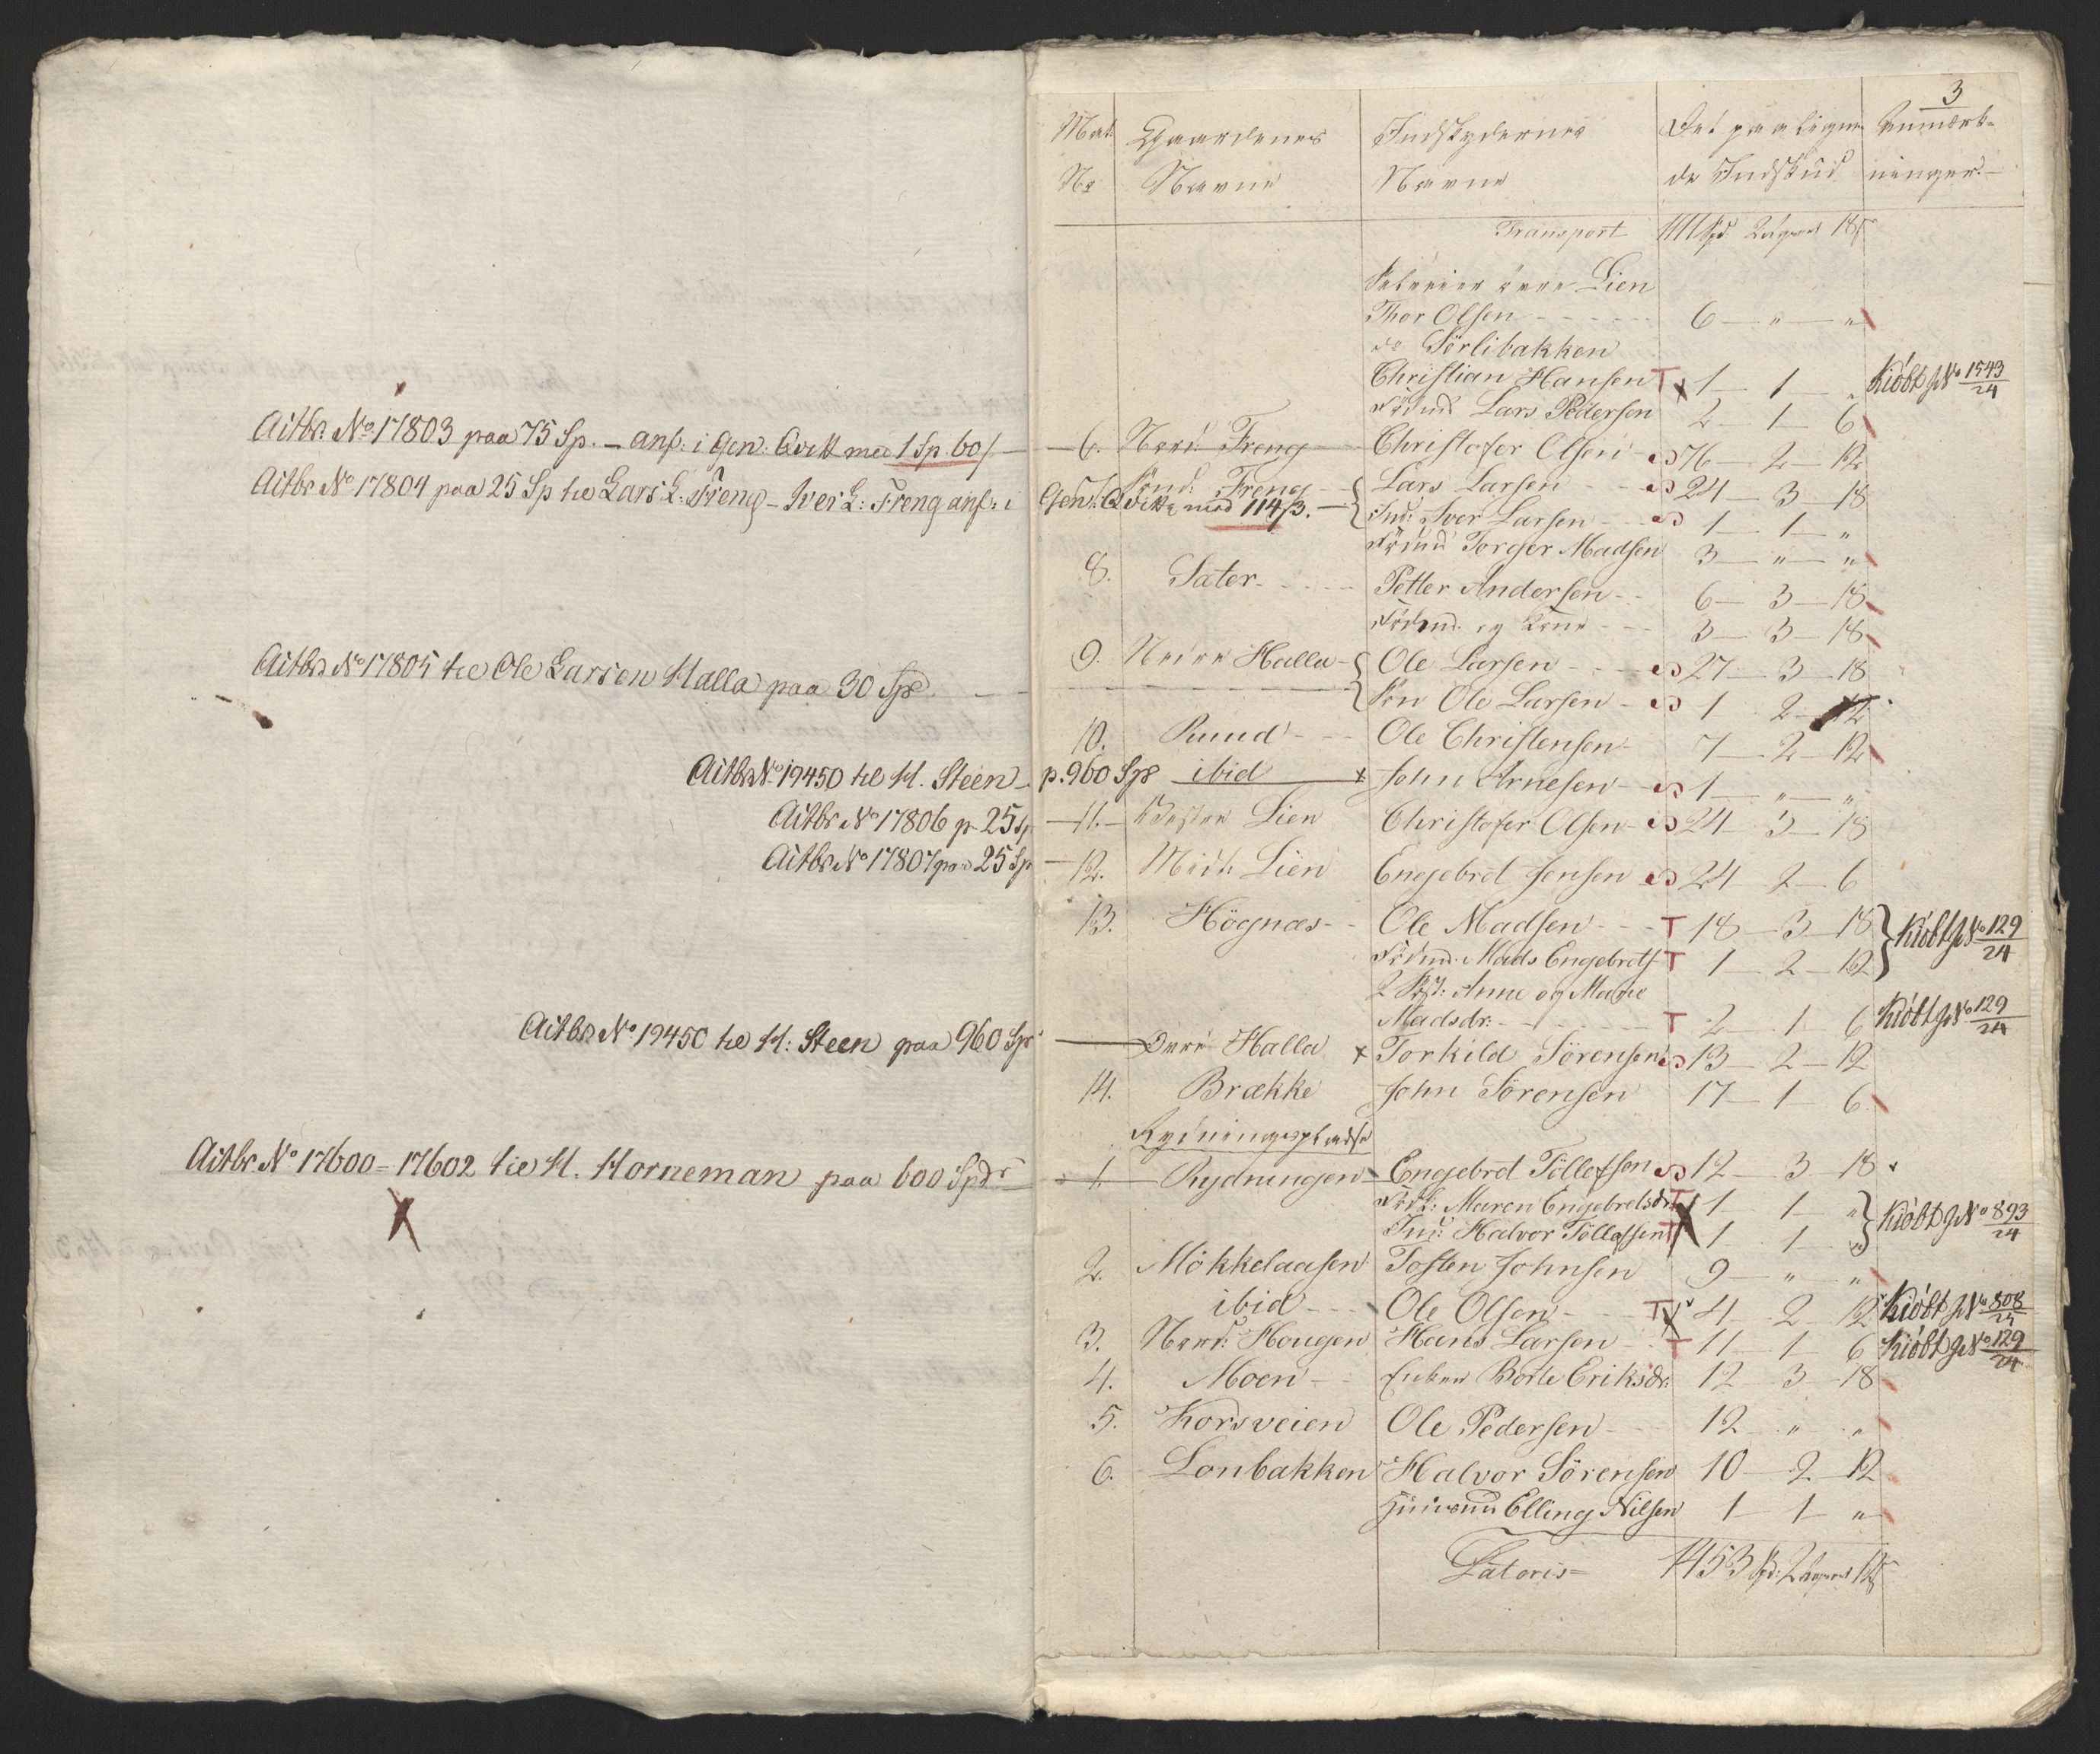 Actbr. No 17803 paa 75 Sp. – anf: i Gen: Qvitt med 1 Sp. 60 ß
Actbr No 17804 paa 25 Sp til Lars L: Freng – Iver L: Freng anf: i Gen: Qvitt med 114 ß.
Actbr. No 17805 til Ole Larsen Halla paa 30 Spd.
Actbr. No 19450 til H. Steen – p. 960 Spd
Actbr No 17806 p 25 Sp
Actbr No 17807 paa 25 Sp
Actbr. No 19450 til H: Steen paa 960 Spd
Actbr. No 17600 = 17602 til H. Horneman paa 600 Spdr
X
3
Mat: No | Gaardenes Navne | Indskydernes Navne | Det paalignede Indskud | Anmærkninger.
Transport 1111 Spd 2 18 ß
øvre Lien
Thor Olsen - - - 6 — " — "
do Sörlibakken
Christian Hansen T x 1 — 1 — " Kiöbt No 1543/24
Lars Pedersen 2 — 1 — 6
6. Nord: Freng Christofer Olsen 76 — 2 — 12
7. Sönd: Freng Lars Larsen 24 — 3 — 18
Ind: Iver Larsen 1 — 1 — "
Torger Madsen 3 — " — "
8. Sæter - - - Petter Andersen 6 — 3 — 18
og Kone - - 3 — 3 — 18
9. Nedre Halla Ole Larsen - - 27 — 3 — 18
Sön Ole Larsen 1 2 — 12
10. Ruud - - Ole Christensen 7 — 2 — 12
ibid x John Arnesen 1 — " — "
11. Vestre Lien Christofer Olsen 24 — 3 — 18
12. Midt Lien Engebret Jensen 24 — 2 — 6
13. Högnæs - - Ole Madsen - - T 18 — 3 — 18 } Kiöbt No 129/24
Mads Engebrets T 1 — 2 — 12
2 Anne og Marie
Madsdr: - - - T 2 — 1 — 6 Kiöbt No 129/24
Övre Halla x Torkild Sörensen 13 — 2 — 12
14. Brække John Sörensen 17 — 1 — 6
Rydningspladse
1. Rydningen Engebret Tollefsen 12 — 3 — 18
Maren Engebretsdr T 1 — 1 — " } Kiöbt No 893/24
Ind: Halvor Tollefsen T 1 — 1 — "
2. Mökkelaasen Tosten Johnsen 9 — " — "
ibid - - - Ole Olsen - - T x 4 — 2 — 12 Kiöbt No 808/24
3. Nord: Hougen Hans Larsen - T 11 — 1 — 6 Kiöbt No 129/24
4. Moen - - Enken Borte Eriksdr: 12 — 3 — 18
5. Korsveien Ole Pedersen - - 12 — " — "
6. Lonbakken Halvor Sörensen 10 — 2 — 12
Elling Nilsen 1 — 1 — "
Lateris = 1453 Spd: 2 12 ß